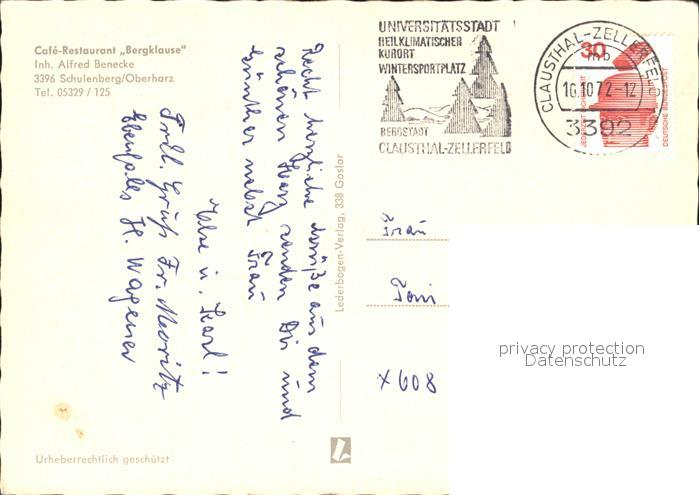 Café-Restaurant „Bergklause"
Inh. Alfred Benecke
3396 Schulenberg/Oberharz
Tel. 05329 / 125
UNIVERSITÄTSSTADT
HEILKLIMATISCHER
KURORT
WINTERSPORTPLATZ
BERGSTADT
CLAUSTHAL-ZELLERFELD
CLAUSTHAL-ZELLERFELD
mb
10.10.72-12
3392
30
JEDERZEIT SICHERHEIT
DEUTSCHE BUNDESPOST
Recht herzliche Grüße aus dem
schönen Harz senden Dir und
Günther nebst Frau
Ilse u. Karl!
Frdl. Gruß Fr. Moritz
Ebenfalls H. Wagener
Lederbogen-Verlag, 338 Goslar
Frau
Toni
x 608
privacy protection
Datenschutz
Urheberrechtlich geschützt